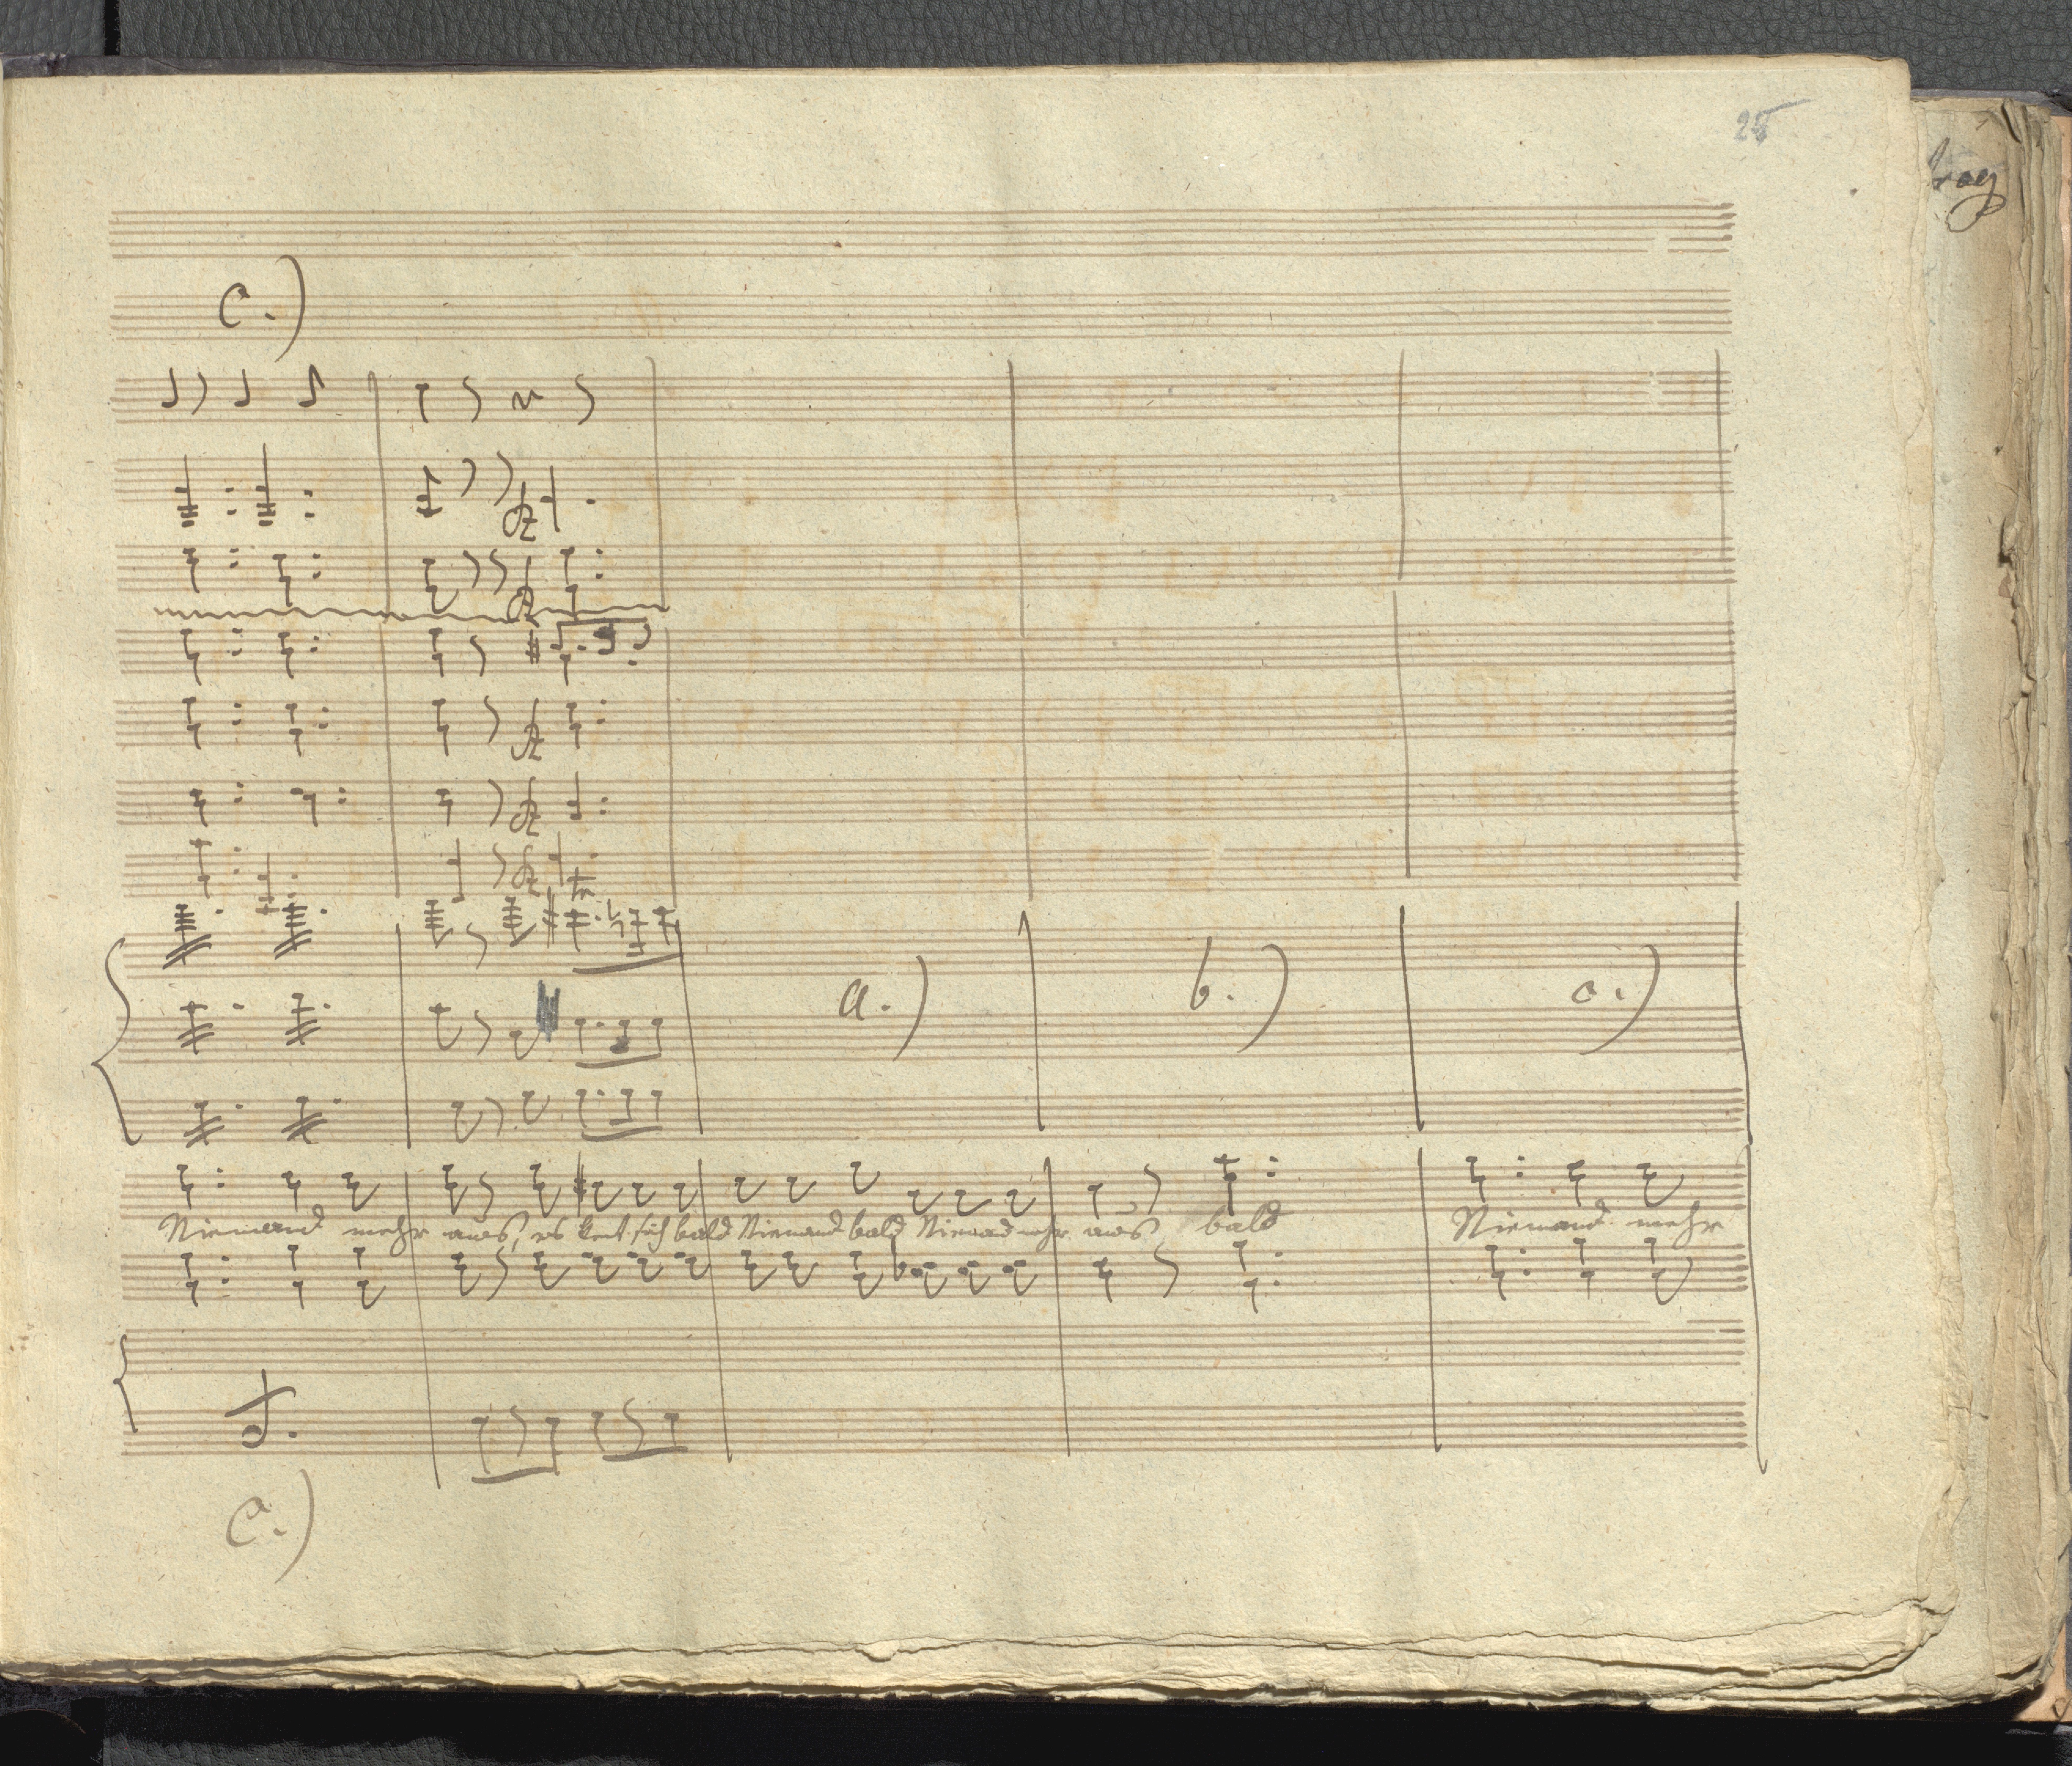 25
c.)
tr
a.) b.) c.)
Niemand mehr aus, es kent sich bald Niemand bald Niemand mehr aus bald Niemand mehr
c.)